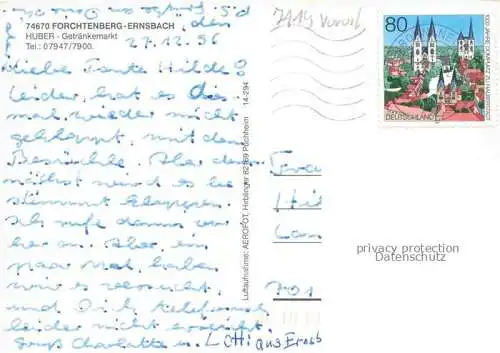 74670 FORCHTENBERG-ERNSBACH
HUBER - Getränkemarkt
Tel.: 07947/7900.
den
27.12.96
Liebe Tante Hilde
leider hat es die
mal wieder nicht
geklappt mit dem
Besuchle. Aber dem
nächst wird es be
stimmt klappen.
Ich rufe dann vor
her an. Aber, ein
paar mal haben
wir es versucht
und Dich telefonisch
leider nicht erreicht.
Gruß Charlotte u. Lothi aus Ernsb
Luftaufnahme: AEROFOT, Hirblinger 82169 Puchheim 14-294
80
DEUTSCHLAND
privacy protection
Datenschutz
701